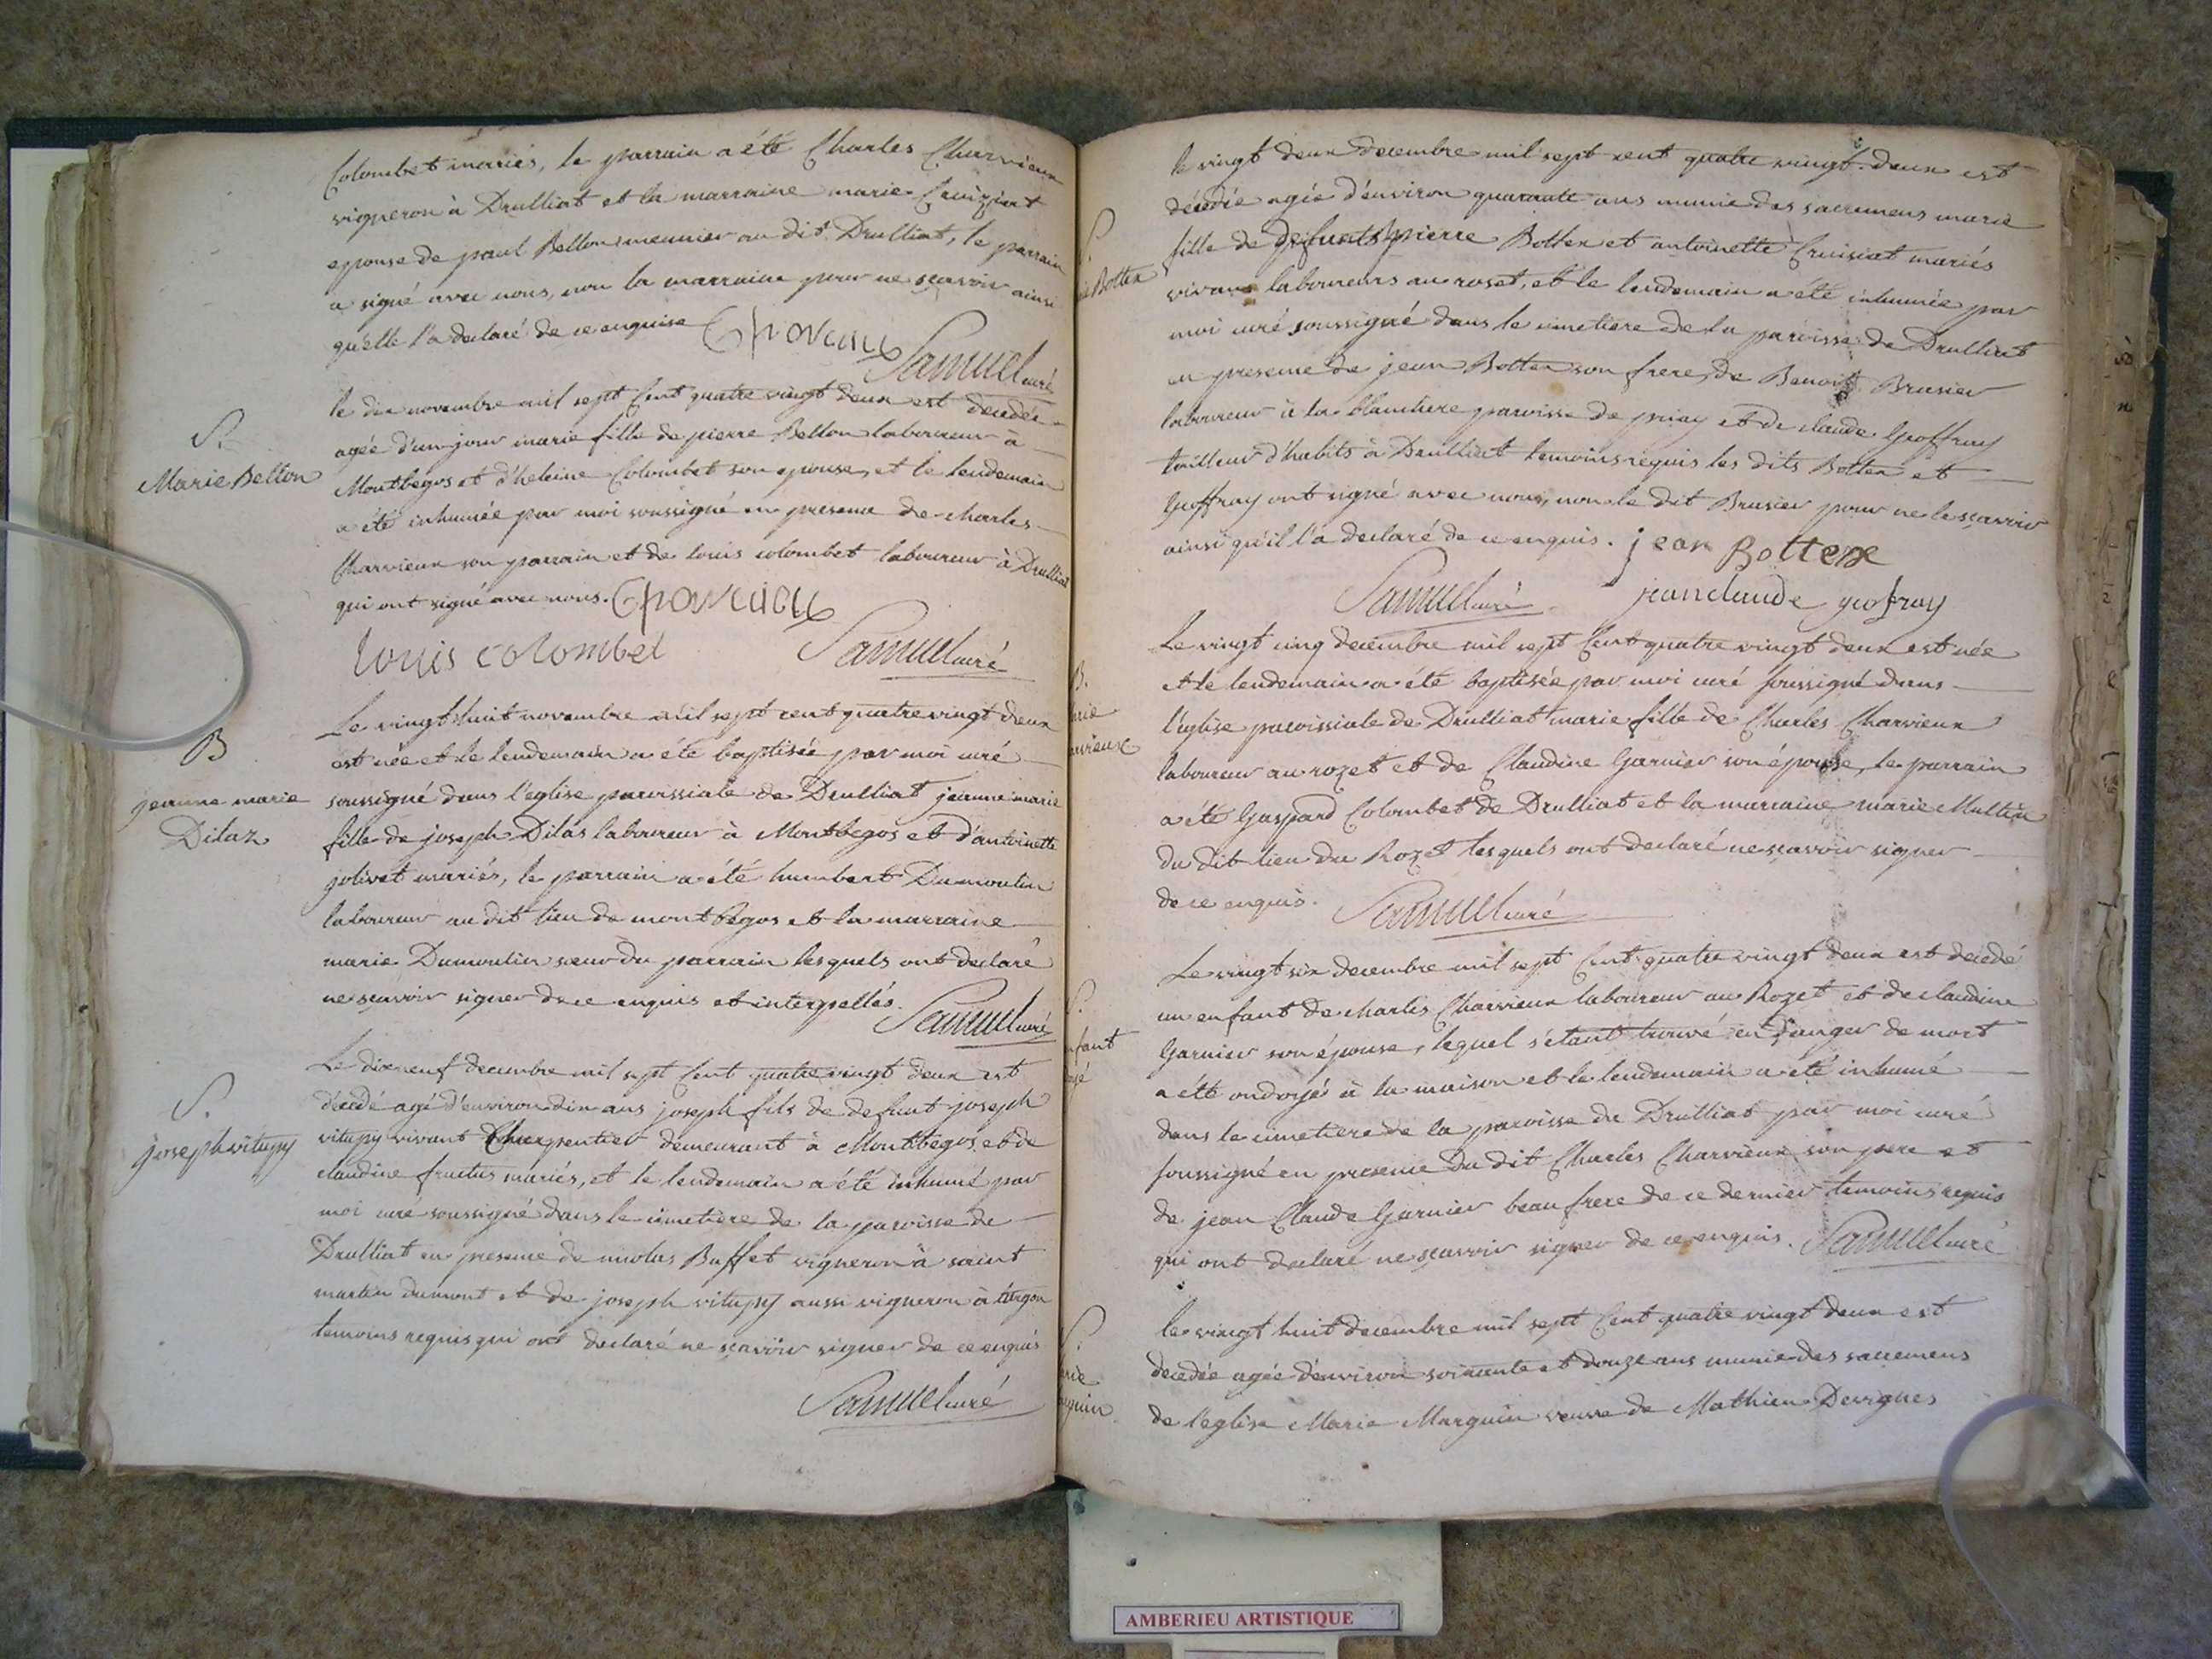 Colombet mariés, le parrain a été Charles Charvieux
vigneron à Drulliat et la marraine marie Cruiziat
epouse de paul Bellon meunier au dit Drulliat, le parrain
a signé avec nous, non la marraine pour ne sçavoir ainsi
qu'elle l'a declaré de ce enquise
Samuel curé
S.
Marie Bellon
le dix novembre mil sept Cent quatre vingt deux est decedée
agée d'un jour marie fille de pierre Bellon laboureur à
Montbegos et d'heleine Colombet son epouse, et le lendemain
a été inhumée par moi soussigné en presence de charles
Charvieux son parrain et de louis colombet laboureur à Drulliat
qui ont signé avec nous.
louis colombet Samuel curé
B
jeanne marie
Dilaz
Le vingt huit novembre mil sept cent quatre vingt deux
est née et le lendemain a été baptisée par moi curé
soussigné dans l'eglise paroissiale de Drulliat jeanne marie
fille de joseph Dilas laboureur à Montbegos et d'antoinette
jolivet mariés, le parrain a été humbert Dumoulin
laboureur au dit lieu de montbegos et la marraine
marie Dumoulin sœur du parrain lesquels ont declaré
ne sçavoir signer de ce enquis et interpellés.
Samuel curé
S.
joseph vitupy
Le dix neuf decembre mil sept Cent quatre vingt deux est
décedé agé d'environ dix ans joseph fils de defunt joseph
vitupy vivant Charpentier demeurant à Montbegos et de
claudine fructus mariés, et le lendemain a été inhumé par
moi curé soussigné dans le cimetière de la paroisse de
Drulliat en presence de nicolas Buffet vigneron à saint
martin dumont et de joseph vitupy aussi vigneron à
temoins requis qui ont declaré ne sçavoir signer de ce enquis
Samuel curé
Botten
le vingt deux decembre mil sept cent quatre vingt deux est
décedée agée d'environ quarante ans munie des sacremens marie
fille de defunts pierre Botten et antoinette Cruisiat mariés
vivans laboureurs au roset, et le lendemain a été inhumée par
moi curé soussigné dans le cimetiere de la paroisse de Drulliat
en presence de jean Botten son frere, de Benoit Brusier
laboureur à la blanchere paroisse de priay et de claude Geoffray
tailleur d'habits à Drulliat temoins requis les dits Botten et
Geoffray ont signé avec nous, non le dit Brusier pour ne le sçavoir
ainsi qu'il l'a declaré de ce enquis. jean Botten
Samuel curé jean claude geofray
B.
Le vingt cinq decembre mil sept Cent quatre vingt deux est née
et le lendemain a été baptisée par moi curé soussigné dans
l'eglise paroissiale de Drulliat marie fille de Charles Charvieux
laboureur au rozet et de Claudine Garnier son épouse, le parrain
a été Gaspard Colombet de Drulliat et la marraine marie Multin
du dit lieu du Rozet lesquels ont declaré ne sçavoir signer
de ce enquis. Samuel curé
Le vingt six decembre mil sept Cent quatre vingt deux est décedé
un enfant de charles Charvieux laboureur au Rozet et de claudine
Garnier son épouse, lequel s'etant trouvé en danger de mort
a été ondoyé à la maison et le lendemain a été inhumé
dans le cimetiere de la paroisse de Drulliat par moi curé
soussigné en presence du dit Charles Charvieux son pere et
de jean Claude Garnier beau frere de ce dernier temoins requis
qui ont declaré ne sçavoir signer de ce enquis. Samuel curé
le vingt huit decembre mil sept Cent quatre vingt deux est
decedée agée d'environ soixante et douze ans munie des sacremens
de l'eglise Marie Marguin veuve de Mathieu Devignes
AMBERIEU ARTISTIQUE